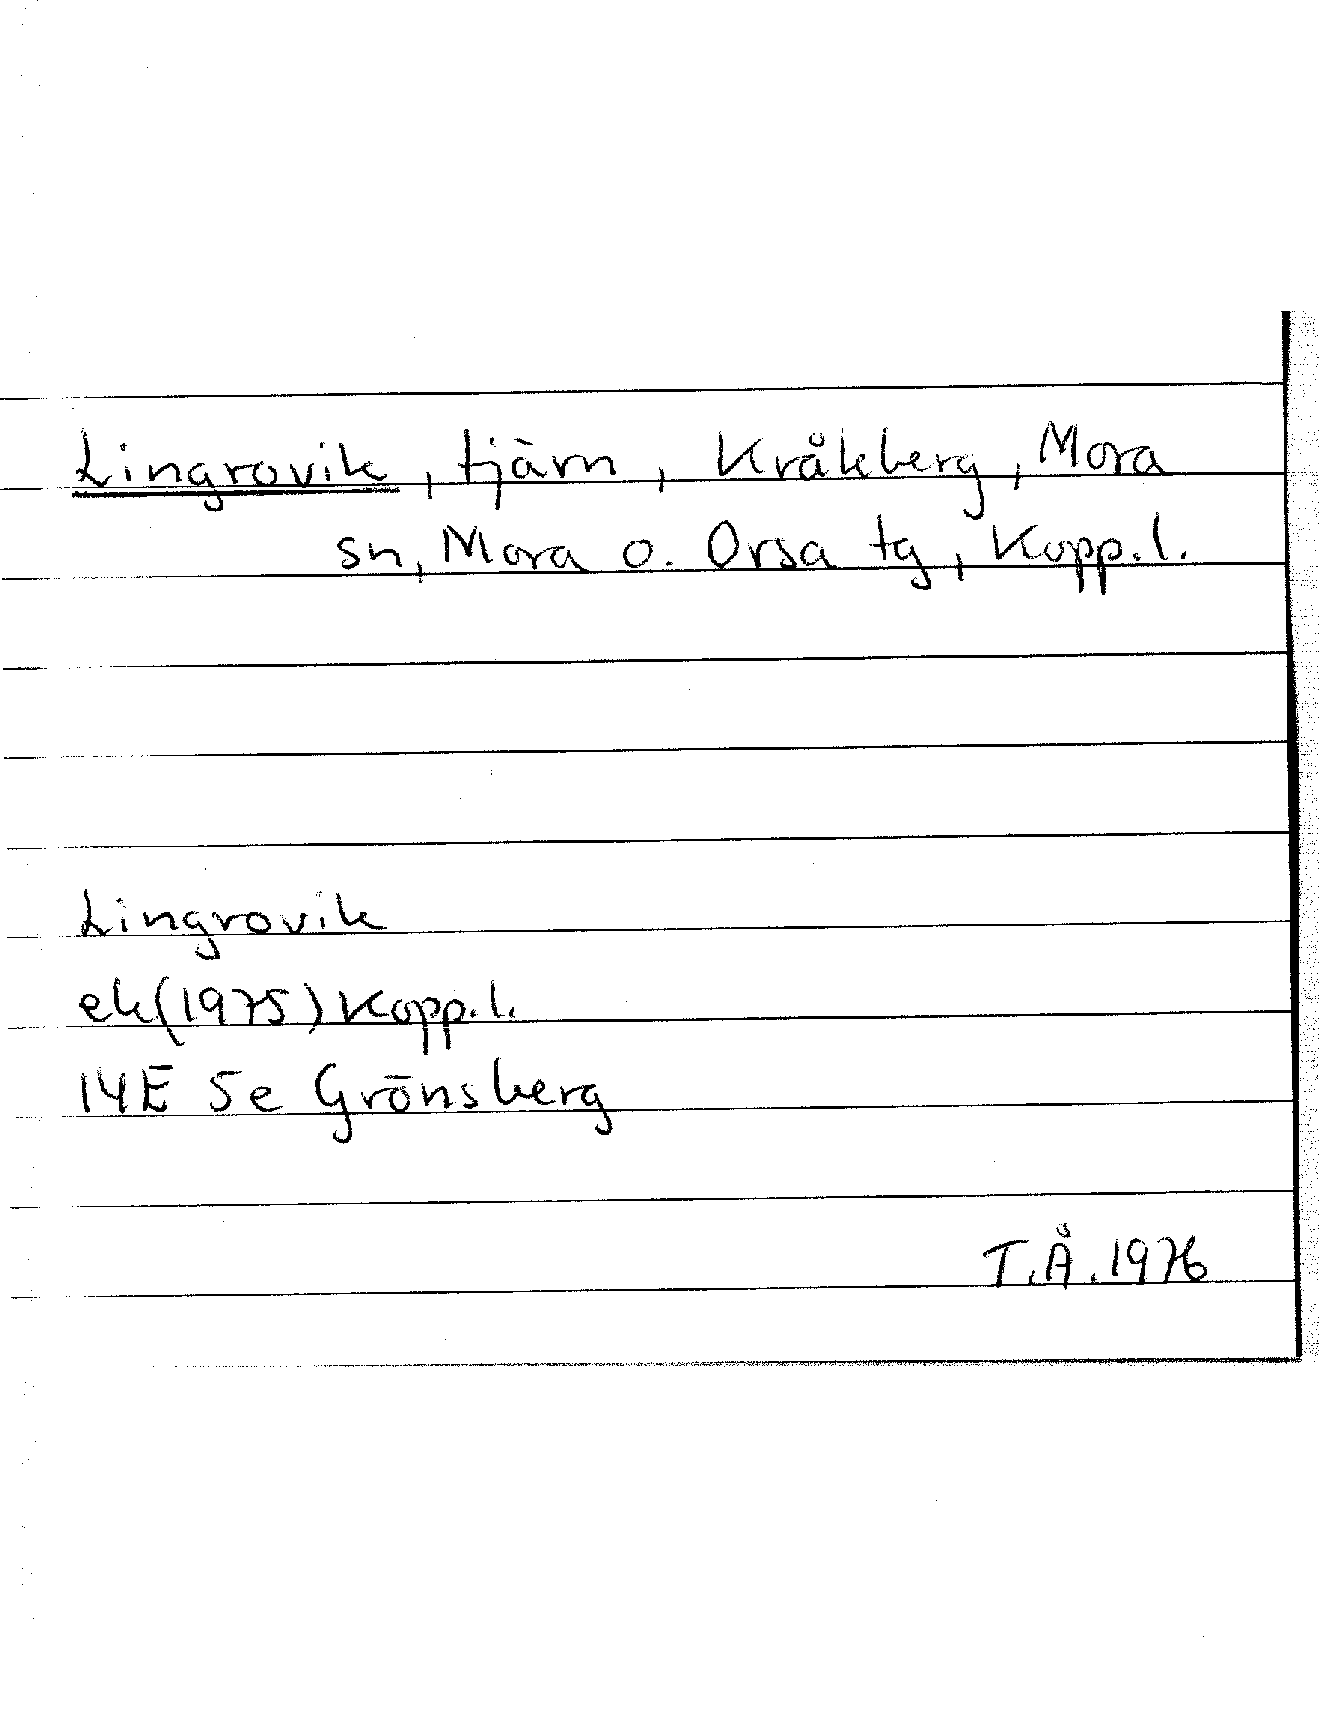 Lingrovik, tjärn, Kråkberg, Mora
sn, Mora o. Orsa tg, Kopp.l.
Lingrovik
ek(1975) Kopp.l.
14E 5e Grönsberg
T.Å.1976